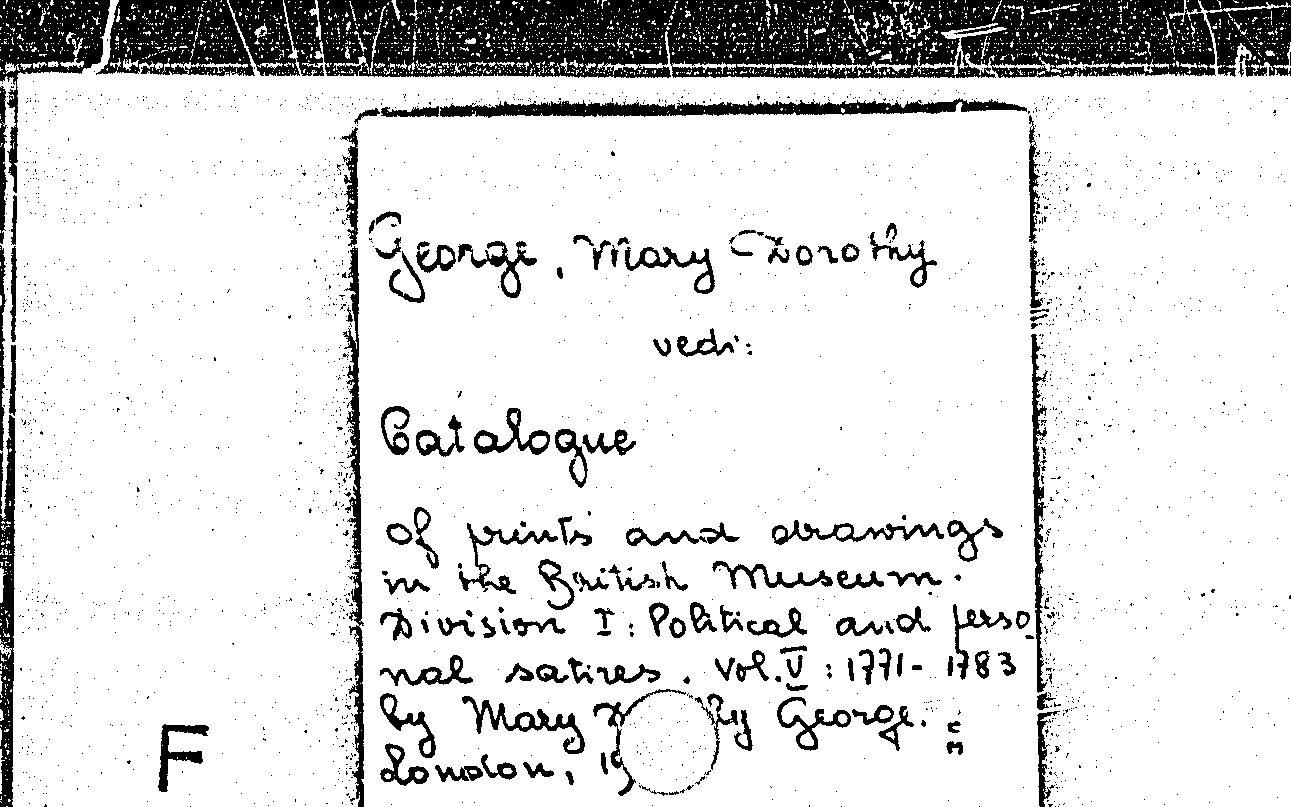 George, Mary Dorothy
vedi:
Catalogue
of prints and drawings
in the British Museum.
Division I: Political and perso-
nal satires. Vol. V: 1771-1783
by Mary George.
London,
F